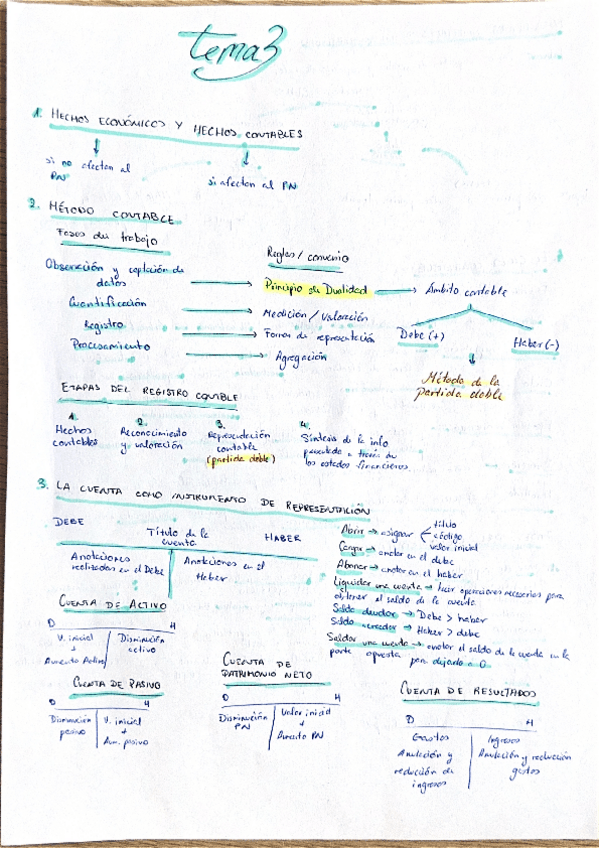 tema 3
1. HECHOS ECONÓMICOS Y HECHOS CONTABLES
si no afectan al
PN
si afectan al PN
2. MÉTODO CONTABLE
Fases du trabajo
Reglas / convenio
Observación y captación de
datos
Principio de Dualidad
Ámbito contable
Cuantificación
Medición / Valoración
Registro
Formas de representación
Procesamiento
Agregación
Debe (+)
Haber (-)
Método de la
partida doble
ETAPAS DEL REGISTRO CONTBLE
1.
Hechos
contables
2.
Reconocimiento
y valoración
3.
Representación
contable
(partida doble)
4.
Síntesis de la info
presentada a través de
los estados financieros
3. LA CUENTA COMO INSTRUMENTO DE REPRESENTACIÓN
DEBE
Título de la
cuenta
HABER
Anotaciones
realizadas en el Debe
Anotaciones en el
Haber
Abrir → asignar
título
código
valor inicial
Cargar → anotar en el debe
Abonar → anotar en el haber
Liquidar una cuenta → hacer operaciones necesarias para
obtener el saldo de la cuenta
Saldo deudor → Debe > haber
Saldo acreedor → Haber > debe
Saldar una cuenta → anotar el saldo de la cuenta en la
parte opuesta para dejarlo a 0
CUENTA DE ACTIVO
D H
V. inicial
+
Aumento Activo
Disminución
activo
CUENTA DE PASIVO
D H
Disminución
pasivo
V. inicial
+
Aum. pasivo
CUENTA DE
PATRIMONIO NETO
D H
Disminución
PN
Valor inicial
+
Aumento PN
CUENTA DE RESULTADOS
D H
Gastos
Anulación y
reducción de
ingresos
Ingresos
Anulación y reducción
gastos